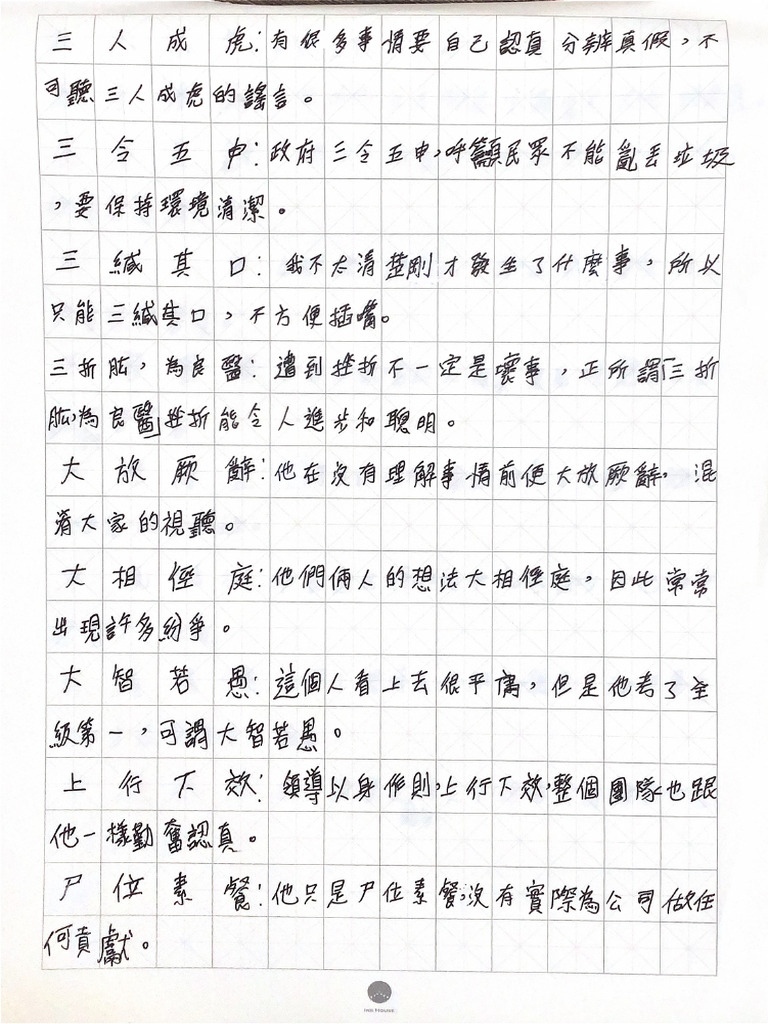 三人成虎：有很多事情要自己認真分辨真假，不
可聽三人成虎的謠言。
三令五申：政府三令五申，呼籲民眾不能亂丟垃圾
，要保持環境清潔。
三緘其口：我不太清楚剛才發生了什麼事，所以
只能三緘其口，不方便插嘴。
三折肱，為良醫：遭到挫折不一定是壞事，正所謂「三折
肱，為良醫」挫折能令人進步和聰明。
大放厥辭：他在沒有理解事情前便大放厥辭，混
淆大家的視聽。
大相徑庭：他們倆人的想法大相徑庭，因此常常
出現許多紛爭。
大智若愚：這個人看上去很平庸，但是他考了全
級第一，可謂大智若愚。
上行下效：領導以身作則，上行下效，整個團隊也跟
他一樣勤奮認真。
尸位素餐：他只是尸位素餐，沒有實際為公司做任
何貢獻。